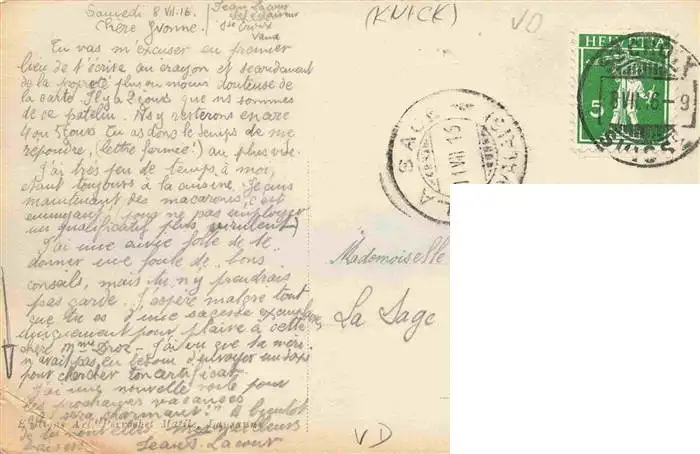 Samedi 8 VII. 16.
Jean Lacour
éclaireur
Ste Croix
Vaud
(KNICK)
VD
Chère Yvonne.
Tu vas m'excuser en premier
lieu de t'écrire au crayon et secondement
de la propreté plus ou moins douteuse de
la carte. Il y a 2 jours que ns sommes
de ce patelin. Ns y resterons encore
4 ou 5 jours tu as donc le temps de me
répondre, (lettre fermée!) au plus vite.
J'ai très peu de temps à moi,
étant toujours à la cuisine. Je cuis
maintenant des macaronis, c'est
ennuyant (pour ne pas employer
un qualificatif plus virulent)
J'ai une envie folle de te
donner une foule de bons
conseils, mais tu n'y prendrais
pas garde. J'espère malgré tout
que tu es d'une sagesse exemplaire,
uniquement pour plaire à cette
chère Mme Droz. J'ai vu que ta mère
n'avait pas eu besoin d'envoyer un
pour chercher ton certificat.
J'ai une nouvelle pour
les prochaines vacances
"sera charmant!" A bientôt
de tes nouvelles. Mes meilleurs
baisers. Jean Lacour
HELVETIA
5
STE CROIX
SUISSE
LA SAGE
11 VII 16
Mademoiselle
La Sage
VD
Editions Art. Perrochet Matile, Lausanne